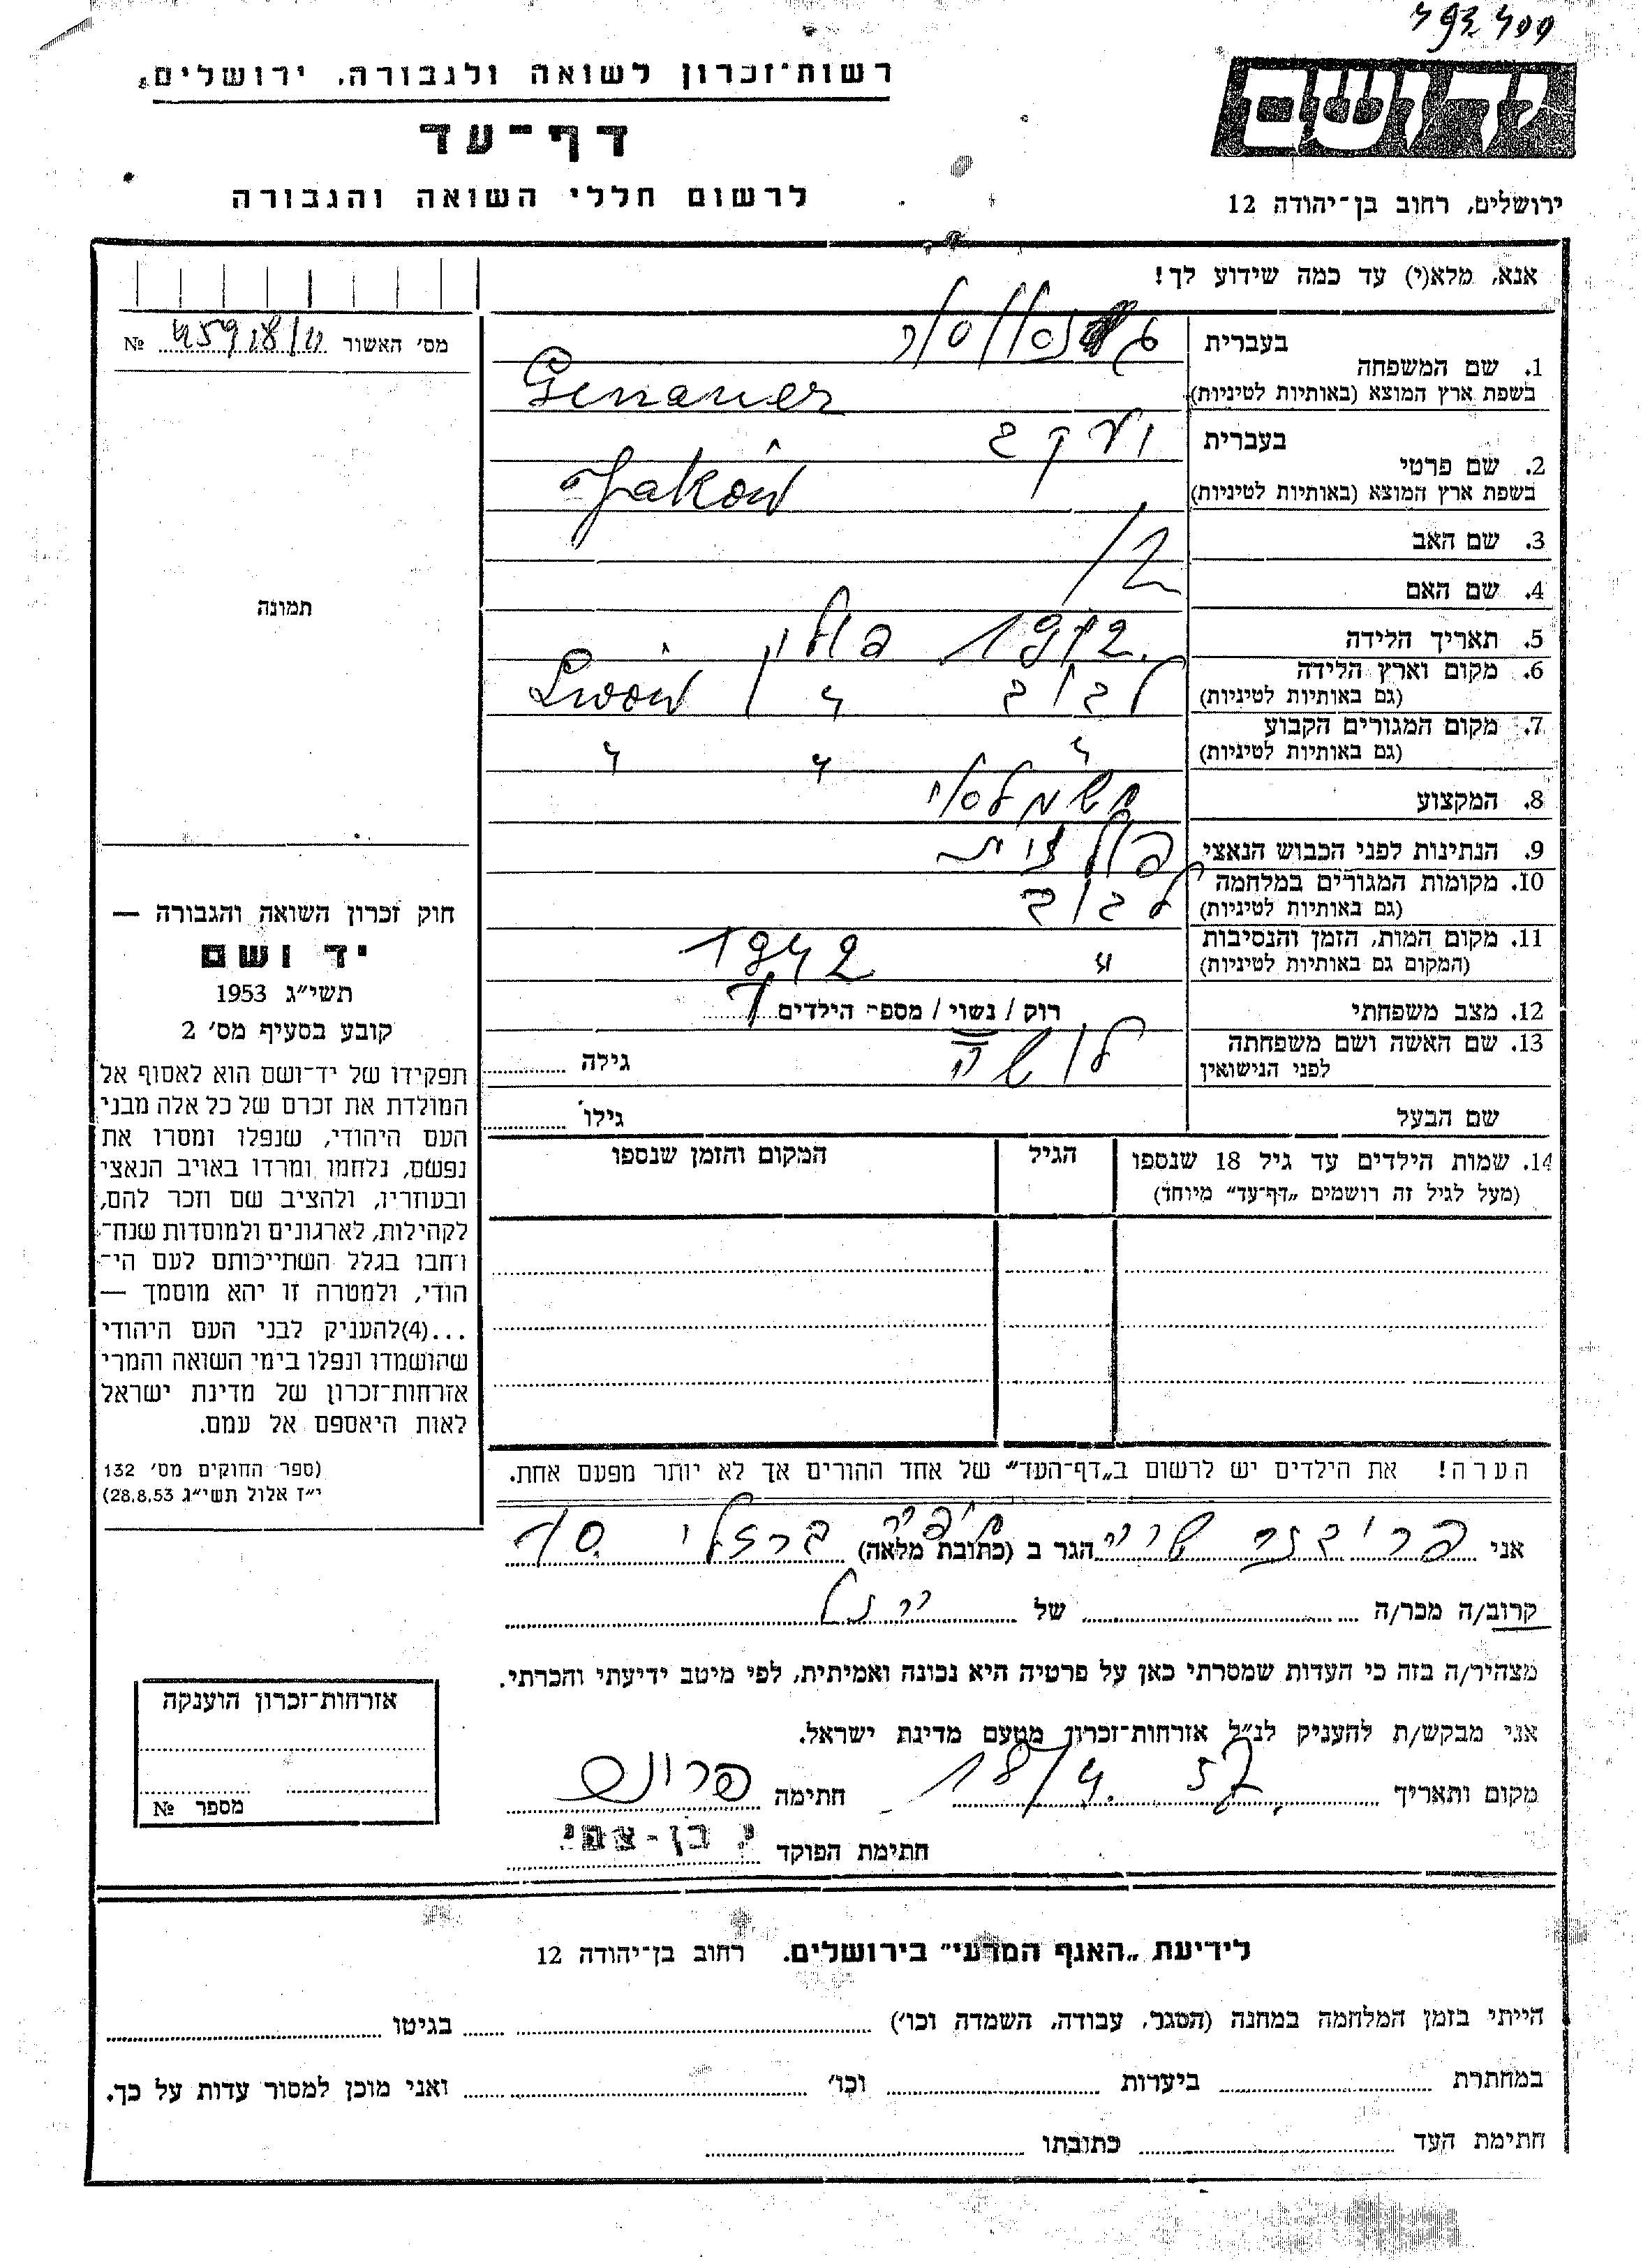 רשות־זכרון לשואה ולגבורה, ירושלים
דף־עד
לרשום חללי השואה והגבורה
יד ושם
ירושלים, רחוב בן־יהודה 12
אנא, מלא(י) עד כמה שידוע לך!
מס׳ האשור №
תמונה
1. שם המשפחה בעברית
בשפת ארץ המוצא (באותיות לטיניות) Genauer
2. שם פרטי בעברית יעקב
בשפת ארץ המוצא (באותיות לטיניות) Jaków
3. שם האב
4. שם האם
5. תאריך הלידה 1912
6. מקום וארץ הלידה לבוב פולין Lwów
(גם באותיות לטיניות)
7. מקום המגורים הקבוע " " "
(גם באותיות לטיניות)
8. המקצוע חשמלאי
9. הנתינות לפני הכבוש הנאצי פולנית
10. מקומות המגורים במלחמה לבוב
(גם באותיות לטיניות)
11. מקום המות, הזמן והנסיבות " 1942
(המקום גם באותיות לטיניות)
12. מצב משפחתי רוק / נשוי / מספר הילדים 1
13. שם האשה ושם משפחתה לושה גילה
לפני הנישואין
שם הבעל גילו
14. שמות הילדים עד גיל 18 שנספו הגיל המקום והזמן שנספו
(מעל לגיל זה רושמים „דף־עד״ מיוחד)
הערה! את הילדים יש לרשום ב„דף־העד״ של אחד ההורים אך לא יותר מפעם אחת.
חוק זכרון השואה והגבורה —
יד ושם
תשי״ג 1953
קובע בסעיף מס׳ 2
תפקידו של יד־ושם הוא לאסוף אל
המולדת את זכרם של כל אלה מבני
העם היהודי, שנפלו ומסרו את
נפשם, נלחמו ומרדו באויב הנאצי
ובעוזריו, ולהציב שם וזכר להם,
לקהילות, לארגונים ולמוסדות שנח־
רחבו בגלל השתייכותם לעם הי־
הודי, ולמטרה זו יהא מוסמך —
...(4)להעניק לבני העם היהודי
שהושמדו ונפלו בימי השואה והמרי
אזרחות־זכרון של מדינת ישראל
לאות היאספם אל עמם.
(ספר החוקים מס׳ 132
י״ז אלול תשי״ג 28.8.53)
אני הגר ב (כתובת מלאה) חיפה ברזלי 10
קרוב/ה מכר/ה של
מצהיר/ה בזה כי העדות שמסרתי כאן על פרטיה היא נכונה ואמיתית, לפי מיטב ידיעתי והכרתי.
אני מבקש/ת להעניק לנ״ל אזרחות־זכרון מטעם מדינת ישראל.
מקום ותאריך 18/4. 57 חתימה
חתימת הפוקד
אזרחות־זכרון הוענקה
מספר №
לידיעת „האגף המדעי״ בירושלים. רחוב בן־יהודה 12
הייתי בזמן המלחמה במחנה (הסגר, עבודה, השמדה וכו׳) בגיטו
במחתרת ביערות וכו׳ ואני מוכן למסור עדות על כך.
חתימת העד כתובתו